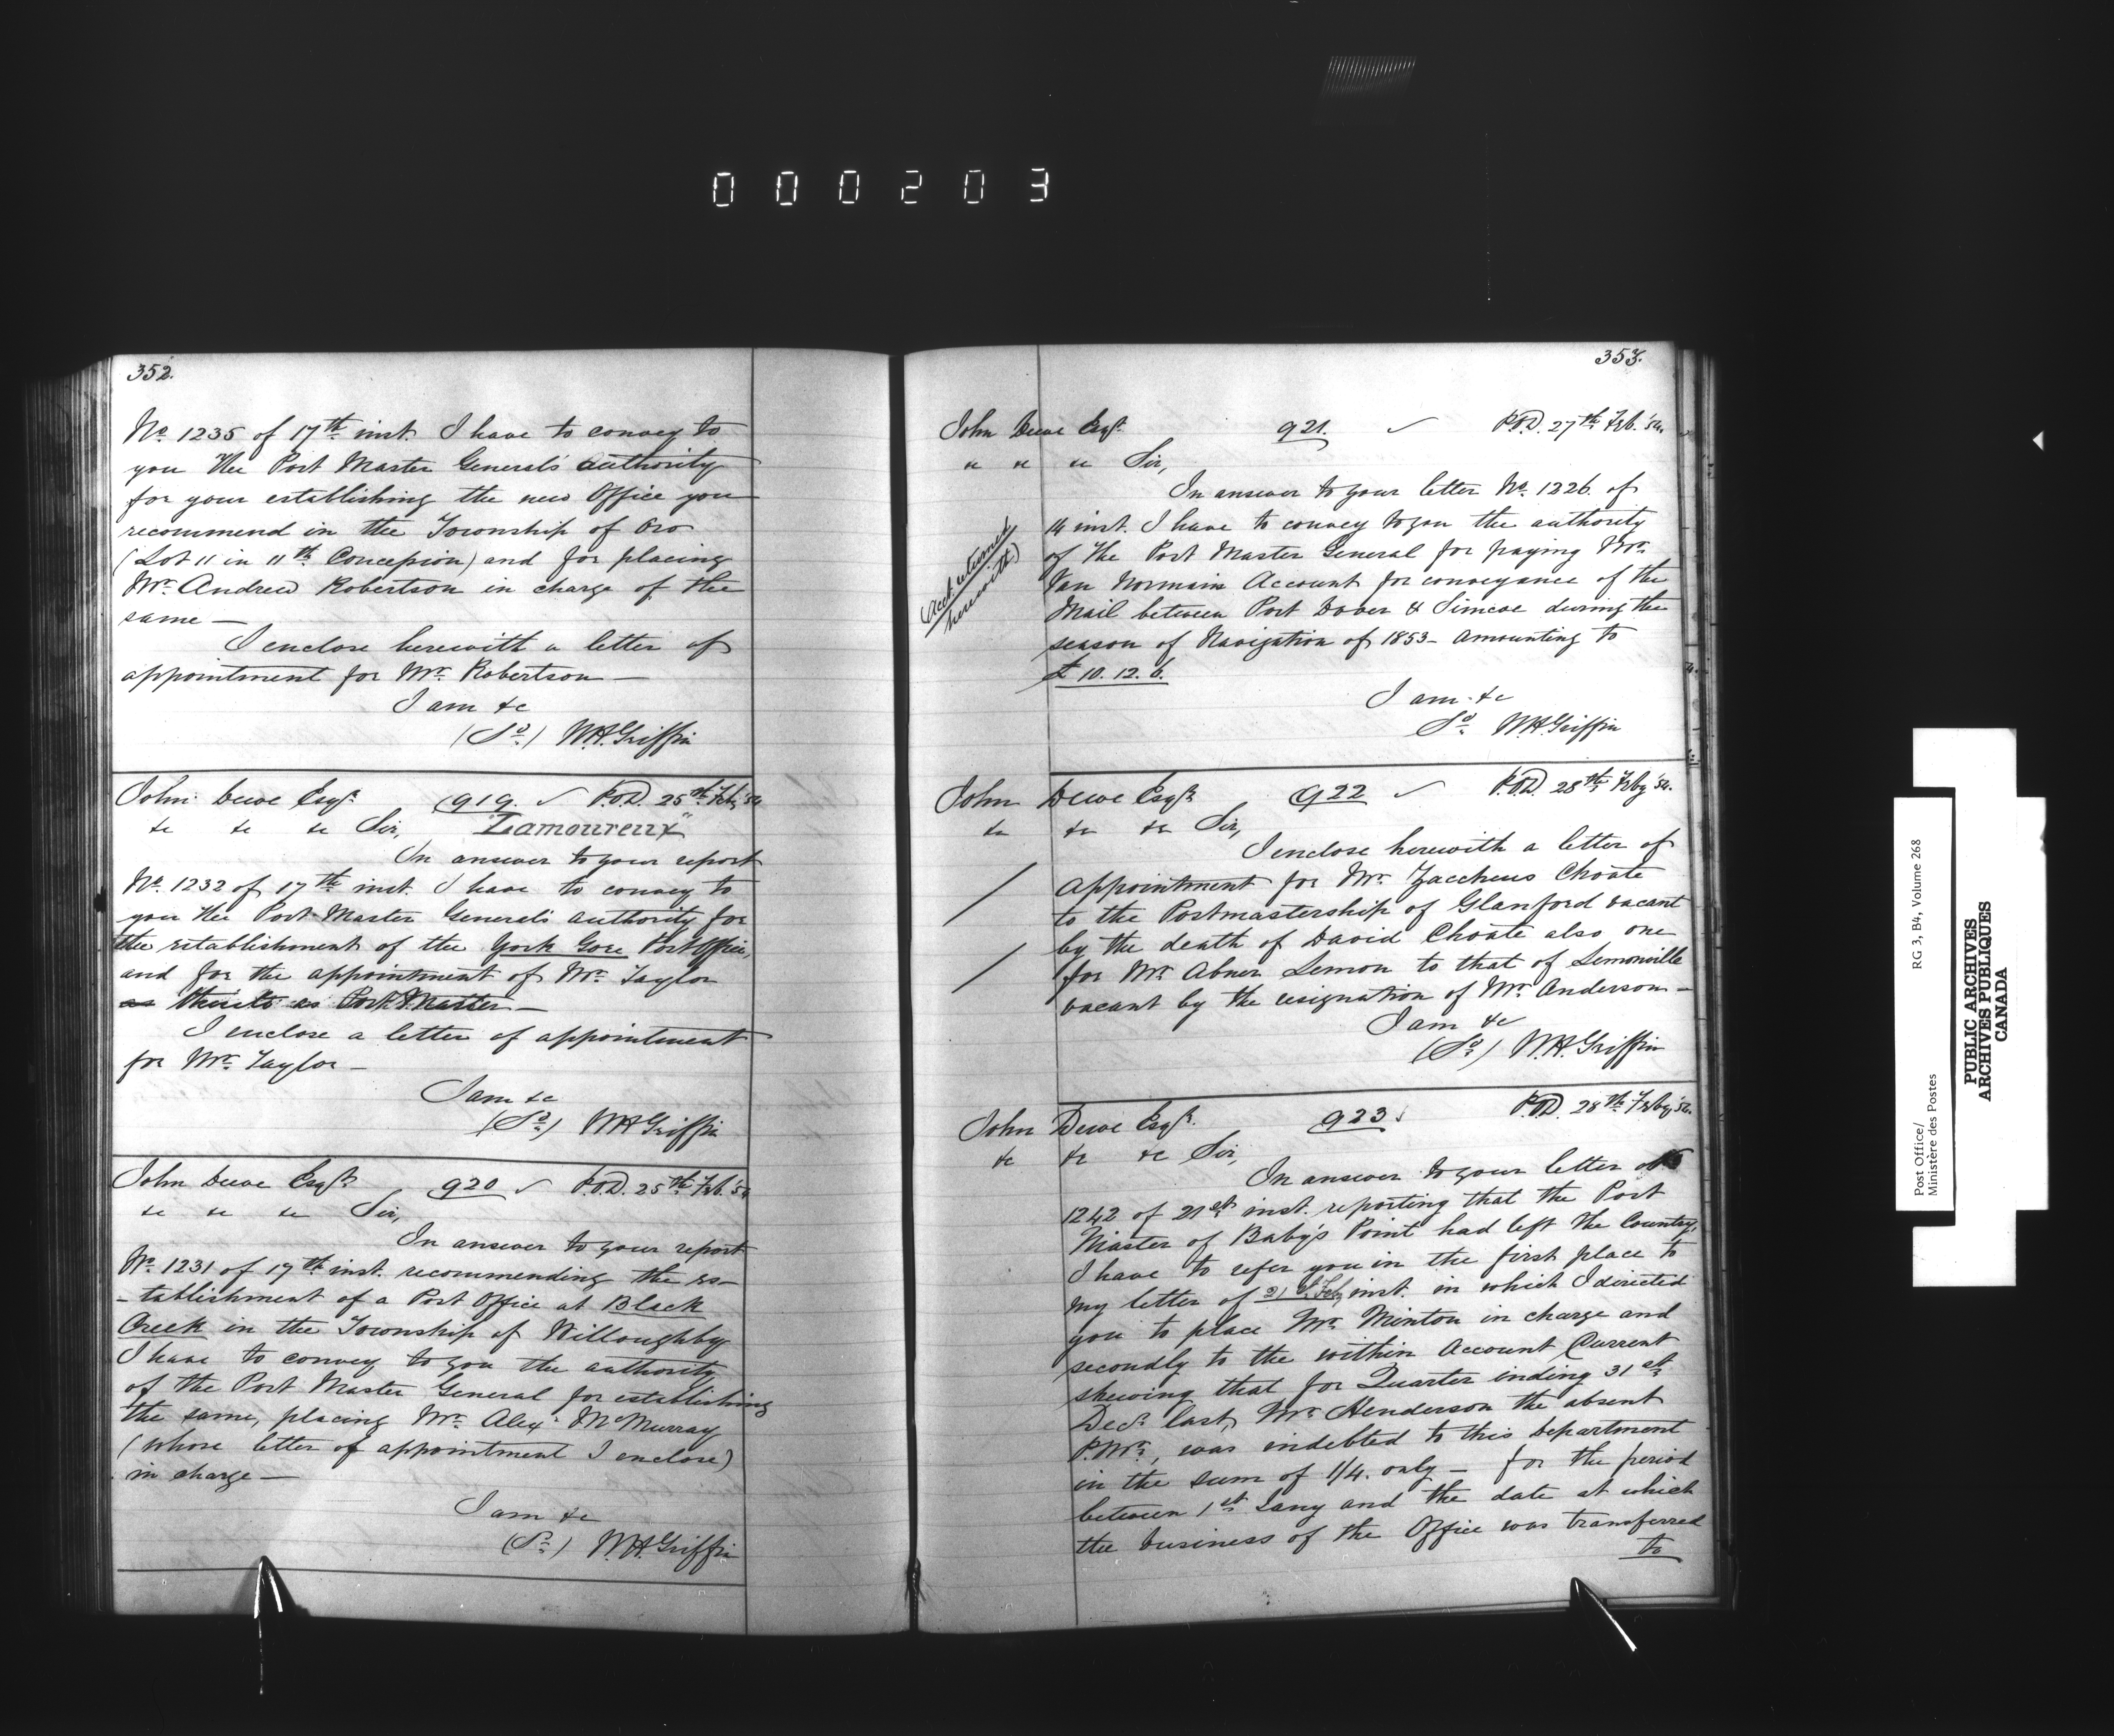 000203
352.
No. 1235 of 17th inst. I have to convey to
you the Post Master General's authority
for your establishing the new Office you
recommend in the Township of Oro
(Lot 11 in 11th Concession) and for placing
Mr. Andrew Robertson in charge of the
same —
I enclose herewith a letter of
appointment for Mr. Robertson —
I am &c
(Sd.) W.H. Griffin
John Dewe Esqr. 919. ✓ P.O.D. 25th Feby '54
&c &c &c Sir, "Lamoureux"
In answer to your report
No. 1232 of 17th inst. I have to convey to
you the Post Master General's authority for
the establishment of the York Gore Post Office,
and for the appointment of Mr. Taylor
as Post Master —
I enclose a letter of appointment
for Mr. Taylor —
I am &c
(Sd.) W.H. Griffin
John Dewe Esqr. 920 ✓ P.O.D. 25th Feb. '54
&c &c &c Sir,
In answer to your report
No. 1231 of 17th inst. recommending the es-
-tablishment of a Post Office at Black
Creek in the Township of Willoughby
I have to convey to you the authority
of the Post Master General for establishing
the same, placing Mr. Alexr. McMurray
(whose letter of appointment I enclose)
in charge —
I am &c
(Sd.) W.H. Griffin
353.
John Dewe Esqr. 921. ✓ P.O.D. 27th Feb. '54.
" " " Sir,
In answer to your letter No. 1226. of
14 inst. I have to convey to you the authority
of the Post Master General for paying Mr.
Van Normain Account for conveyance of the
Mail between Port Dover & Simcoe during the
season of Navigation of 1853 - amounting to
£ 10. 12. 6.
(Acct. returned
herewith)
I am &c
Sd. W.H. Griffin
John Dewe Esqr. 922 ✓ P.O.D. 28th Feby '54.
&c &c &c Sir,
I enclose herewith a letter of
appointment for Mr. Zaccheus Choate
to the Postmastership of Glanford vacant
by the death of David Choate also one
for Mr. Abner Lemon to that of Lemonville
vacant by the resignation of Mr. Anderson —
I am &c
(Sd.) W.H. Griffin
John Dewe Esqr. 923 ✓ P.O.D. 28th Feby '54.
&c &c &c Sir,
In answer to your letter
1242 of 21st inst. reporting that the Post
Master of Baby's Point had left the Country,
I have to refer you in the first place to
my letter of 21st Feby inst. in which I directed
you to place Mr. Minton in charge and
secondly to the within Account Current
shewing that for Quarter ending 31st
Decr. last, Mr. Henderson the absent
P.Mr., was indebted to this Department
in the sum of 1/4. only — for the period
between 1st Jany and the date at which
the business of the Office was transferred
to
Post Office/
Ministère des Postes
RG 3, B4, Volume 268
PUBLIC ARCHIVES
ARCHIVES PUBLIQUES
CANADA